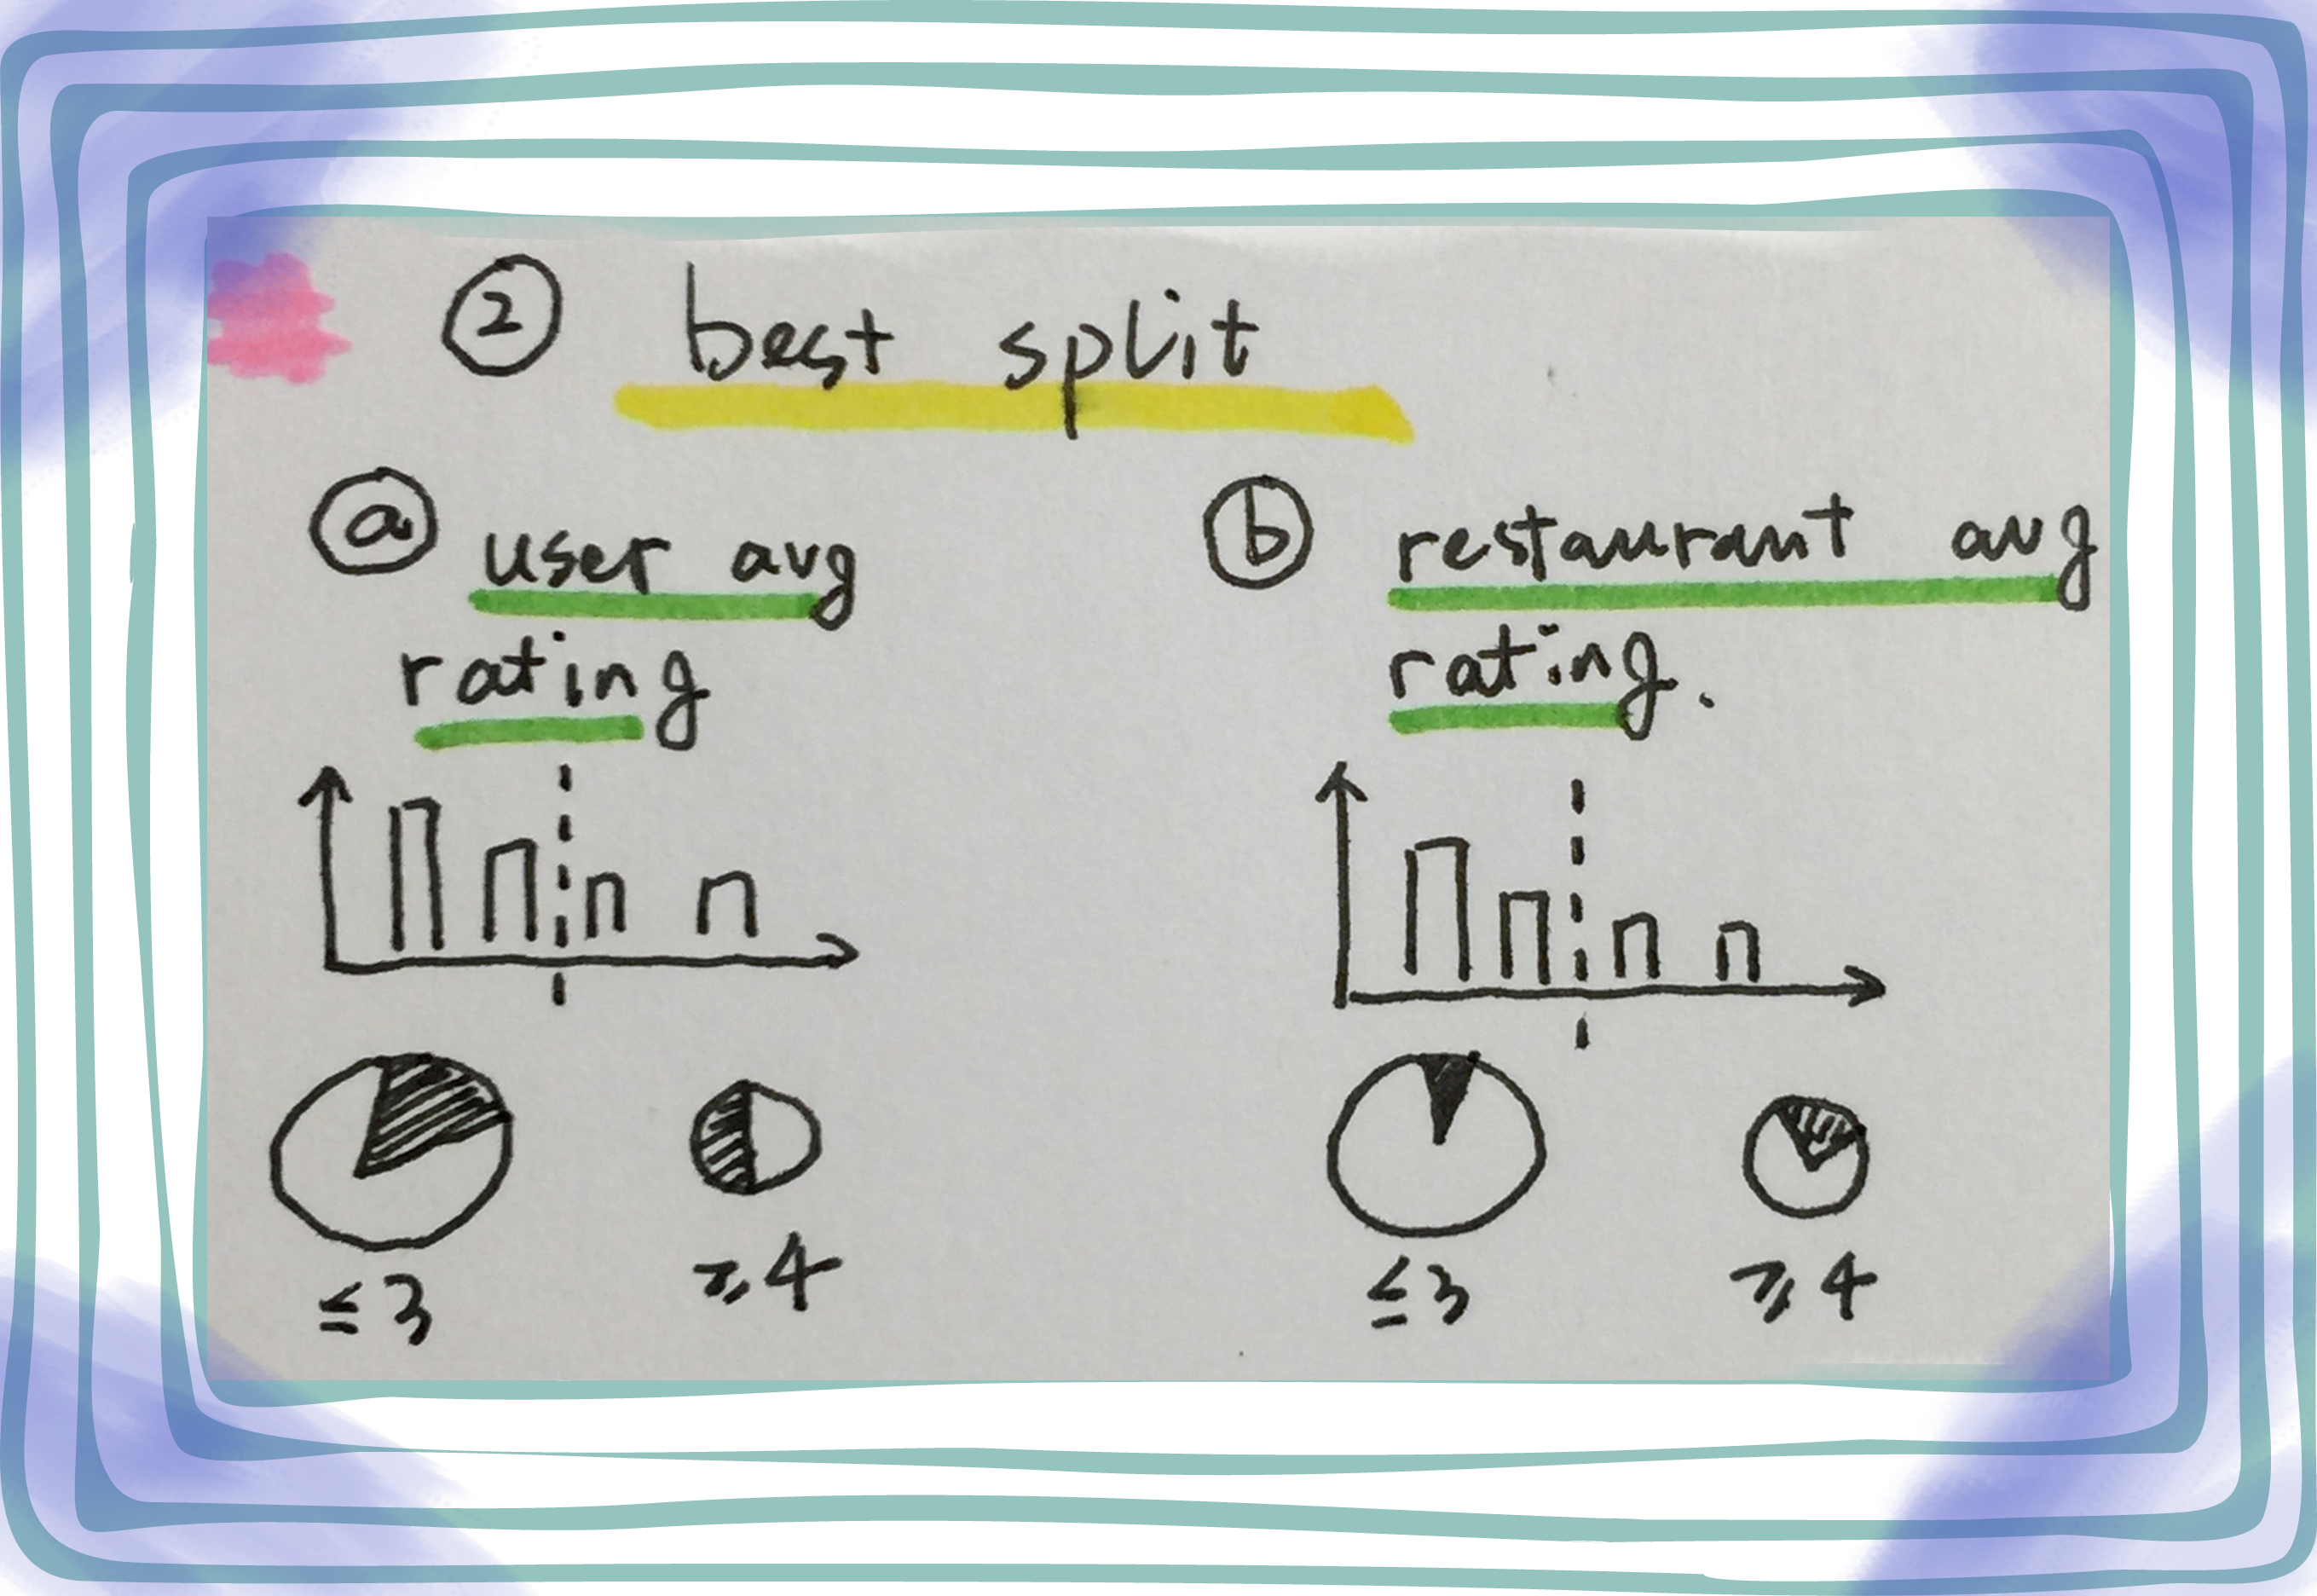 ② best split
ⓐ user avg
rating
ⓑ restaurant avg
rating.
≤3
≥4
≤3
≥4